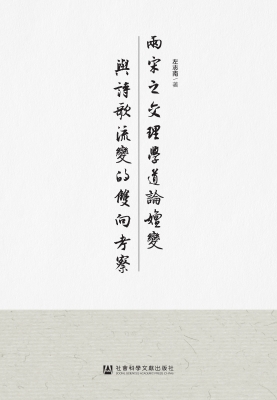 兩宋之交理學道論嬗變
與詩歌流變的雙向考察
左志南 著
社會科學文獻出版社
SOCIAL SCIENCES ACADEMIC PRESS (CHINA)